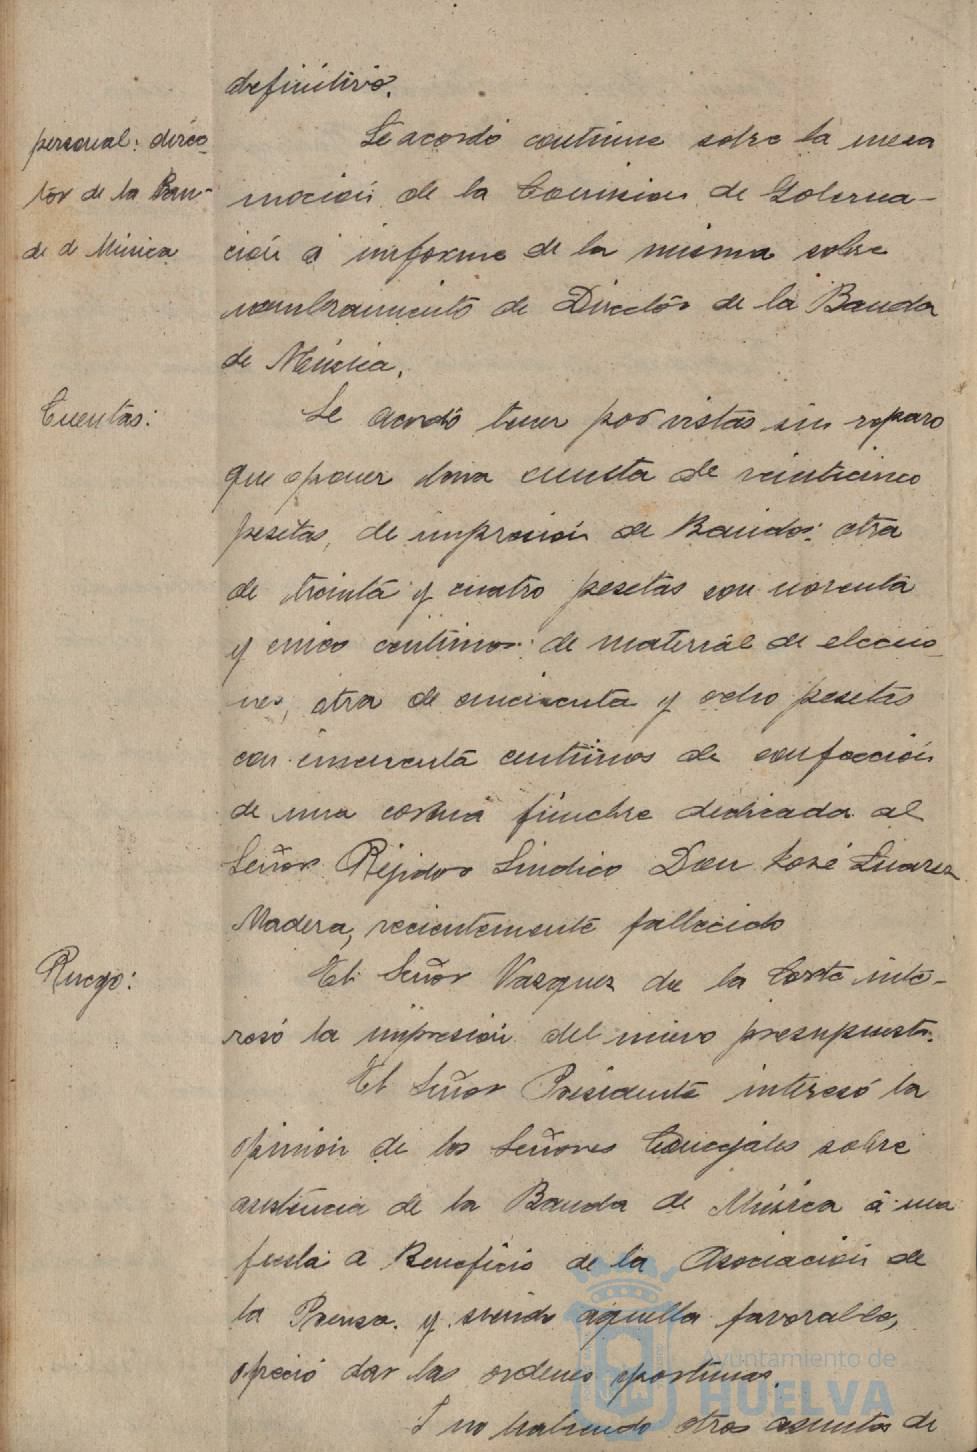 definitivo.
personal: direc-
tor de la Ban-
da d Música
Se acordó continue sobre la mesa
moción de la Comision de Goberna-
ción é informe de la misma sobre
nombramiento de Director de la Banda
de Música.
Cuentas:
Se acordó tener por vistas sin reparo
que oponer una cuenta de veinticinco
pesetas, de impresión de Bandos: otra
de treinta y cuatro pesetas con noventa
y cinco centimos: de material de eleccio-
nes, otra de cincuenta y ocho pesetas
con cincuenta centimos de confección
de una corona fúnebre dedicada al
Señor Regidor Sindico Don José Suarez
Madera, recientemente fallecido
Ruego:
El Señor Vazquez de la Corte inte-
resó la impresión del nuevo presupuesto.
El Señor Presidente interesó la
opinión de los Señores Concejales sobre
asistencia de la Banda de Música á una
fiesta a Beneficio de la Asociación de
la Prensa. y siendo aquella favorable,
ofreció dar las ordenes oportunas.
Y no habiendo otros asuntos de
Ayuntamiento de
HUELVA